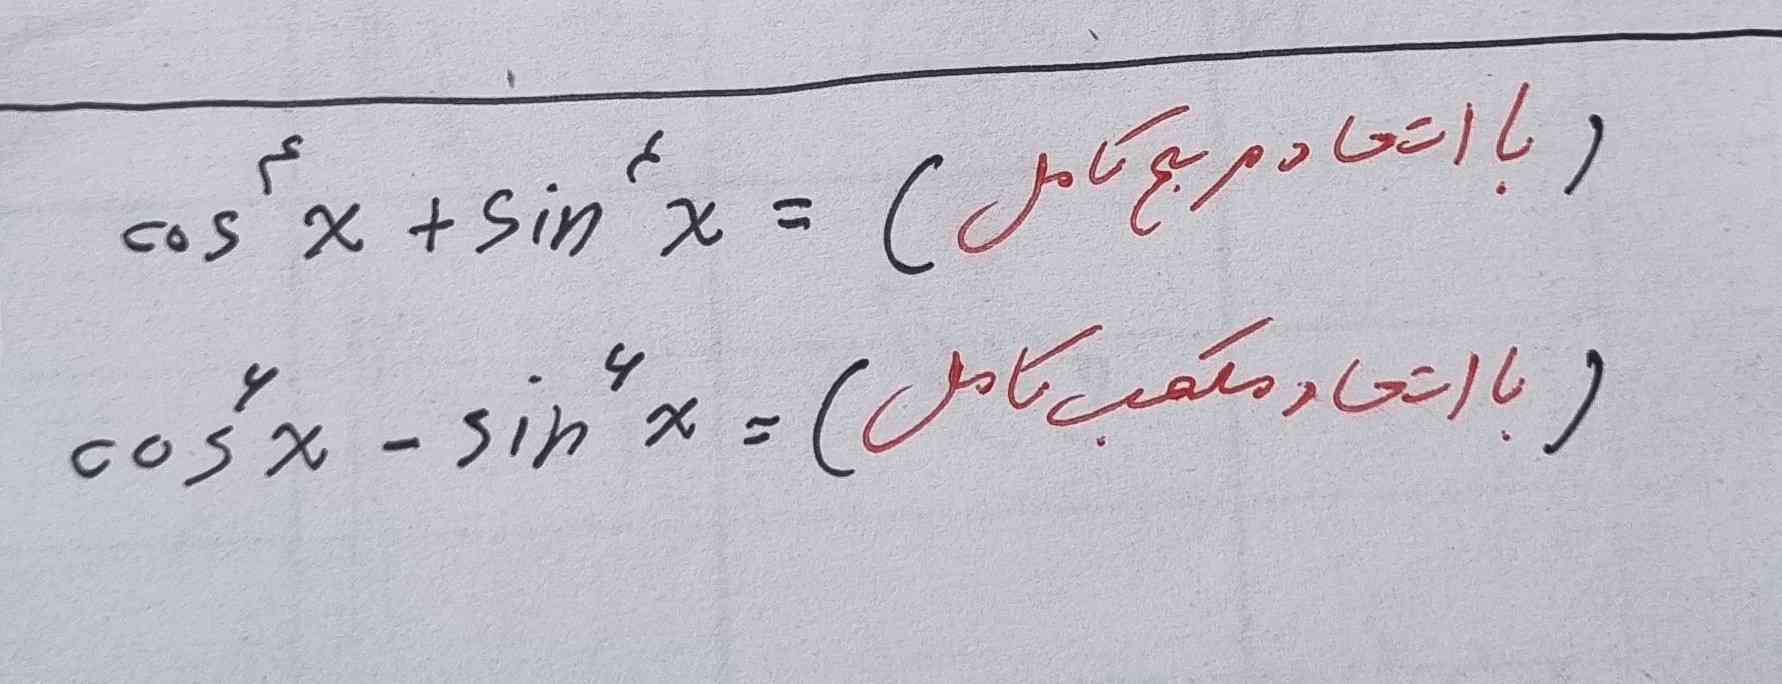 cos⁴x + sin⁴x = (با اتحاد مربع کامل)
cos⁶x - sin⁶x = (با اتحاد مکعب کامل)